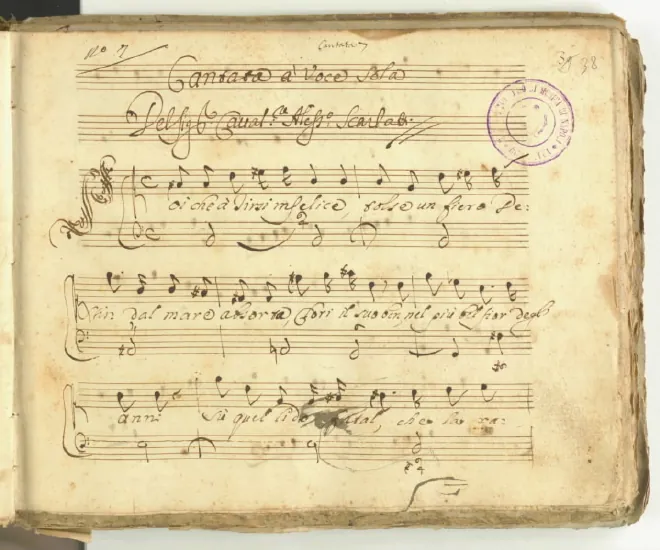 N.º 7
Cantata 7
38
Cantata à Voce Sola
Del Sig.r Caval.re Aless.o Scarlatti
oi che à Tirsi infelice, tolse un fiero De:
stin dal mare absorta, Clori il suo ben, nel più bel fior degl'
anni Sù quel lido fatal, che la ra: